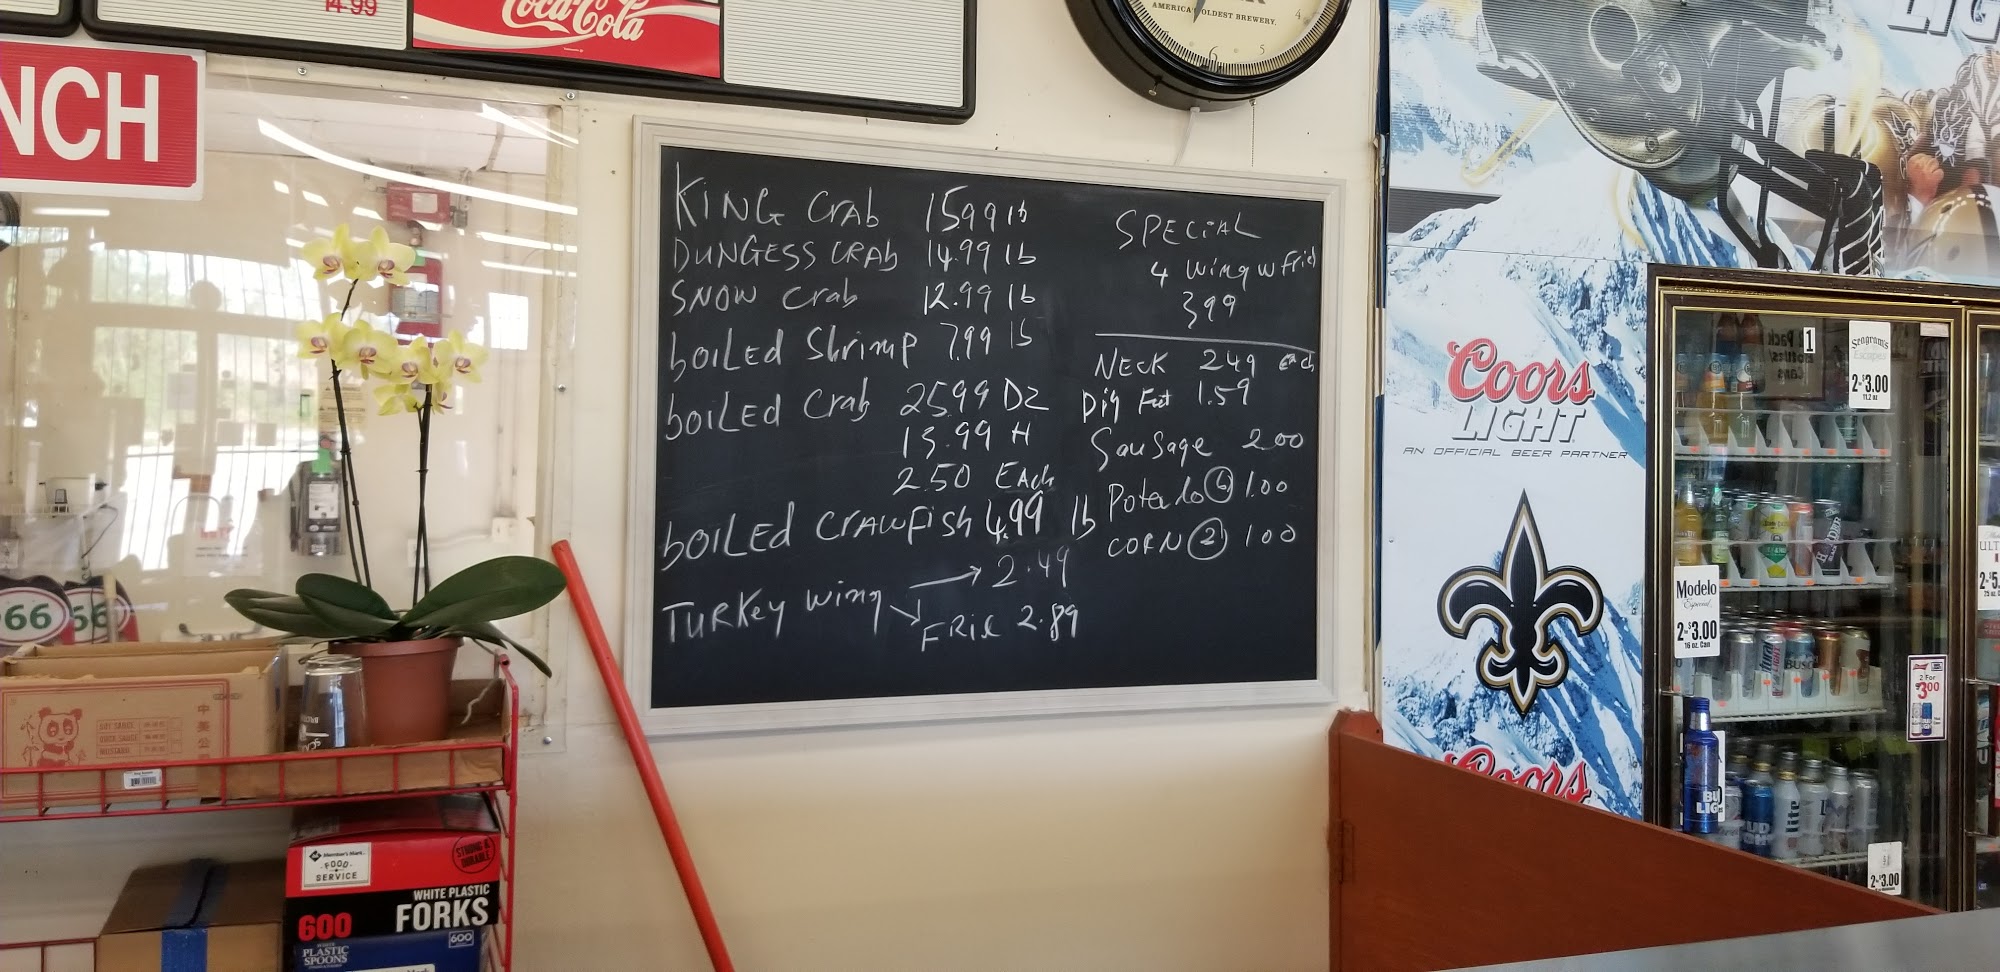 14.99
Coca-Cola
AMERICA'S OLDEST BREWERY.
6 5 4
NCH
KING CRAb 1599 lb
DUNGESS CRAb 14.99 lb
SNOW Crab 12.99 lb
boiLed Shrimp 7.99 lb
boiLed Crab 2599 DZ
13.99 H
2.50 EAch
boiLed CrawFish 4.99 lb
TURKey wing → 2.49
FRIE 2.89
SPECIAL
4 wing w fried
399
NECK 249 each
Pig Feet 1.59
Sausage 2.00
Potado 6 1.00
CORN 2 100
LIG
Coors
LIGHT
AN OFFICIAL BEER PARTNER
Coors
1
Seagram's
Escapes
2-$3.00
11.2 oz
Modelo
Especial
2-$3.00
16 oz. Can
2 For
$3.00
BUSC
BUD
LIGHT
2-$3.00
ULT
2-$5.
66
66
Member's Mark
FOOD
SERVICE
STRONG &
DURABLE
WHITE PLASTIC
FORKS
600
600
WHITE
PLASTIC
SPOONS